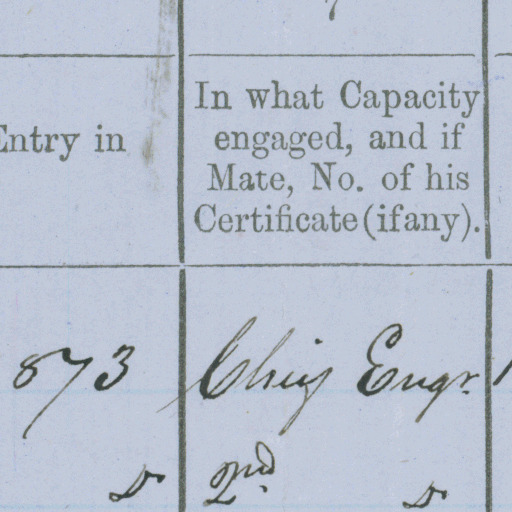 Entry in
In what Capacity
engaged, and if
Mate, No. of his
Certificate (if any).
873 Chief Engr.
Do 2nd. Do